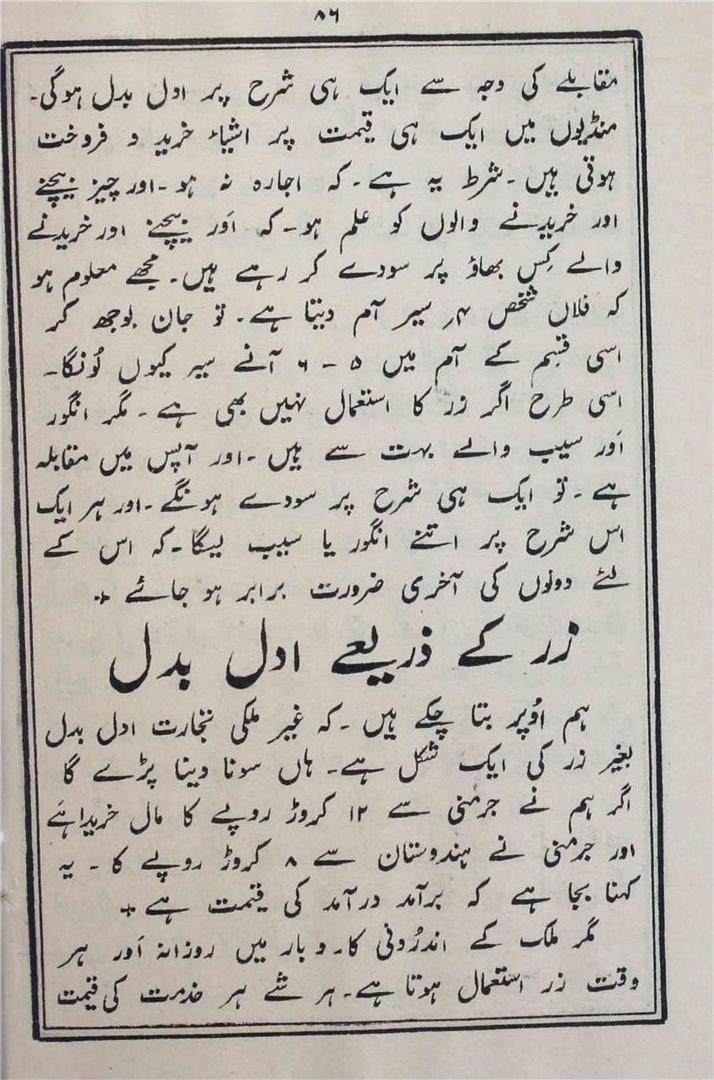 ۸۶
مقابلے کی وجہ سے ایک ہی شرح پر ادل بدل ہوگی۔
منڈیوں میں ایک ہی قیمت پر اشیاء خرید و فروخت
ہوتی ہیں۔ شرط یہ ہے۔ کہ اجارہ نہ ہو۔ اور چیز بیچنے
اور خریدنے والوں کو علم ہو۔ کہ اَور بیچنے اور خریدنے
والے کِس بھاؤ پر سودے کر رہے ہیں۔ مجھے معلوم ہو
کہ فلاں شخص ۴؍ سیر آم دیتا ہے۔ تو جان بوجھ کر
اسی قسِم کے آم میں ۵ - ۶ آنے سیر کیوں لُونگا۔
اسی طرح اگر زر کا استعمال نہیں بھی ہے۔ مگر انگور
اَور سیب والے بہت سے ہیں۔ اور آپس میں مقابلہ
ہے۔ تو ایک ہی شرح پر سودے ہونگے۔ اور ہر ایک
اس شرح پر اتنے انگور یا سیب لیگا۔ کہ اس کے
لئے دونوں کی آخری ضرورت برابر ہو جائے +
زر کے ذریعے ادل بدل
ہم اُوپر بتا چکے ہیں۔ کہ غیر ملکی تجارت ادل بدل
بغیر زر کی ایک شکل ہے۔ ہاں سونا دینا پڑے گا
اگر ہم نے جرمنی سے ۱۲ کروڑ روپے کا مال خریدا ہَے
اور جرمنی نے ہندوستان سے ۸ کروڑ روپے کا۔ یہ
کہنا بجا ہے کہ برآمد درآمد کی قیمت ہے +
مگر ملک کے اندرُونی کاروبار میں روزانہ اَور ہر
وقت زر استعمال ہوتا ہے۔ ہر شے ہر خدمت کی قیمت